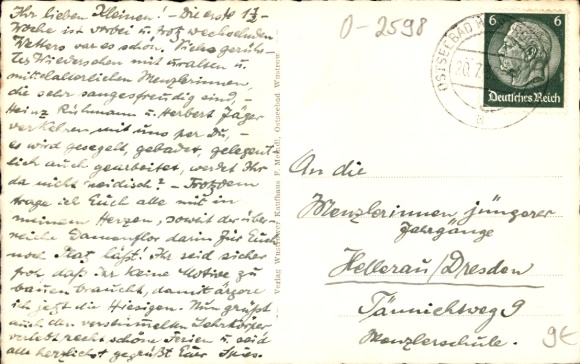 Ihr lieben Kleinen! – Die erste 1½
Woche ist vorbei u. trotz wechselnden
Wetters war es schön. Vieles
Wiedersehen mit uralten u.
mittelalterlichen Menzlerinnen,
die sehr sangesfreudig sind, –
Heinz Rühmann u. Herbert Jäger
verkehren mit uns per Du, –
es wird gesegelt, gebadet, gelegent-
lich auch gearbeitet, werdet Ihr
da nicht neidisch? – Trotzdem
trage ich Euch alle mit in
meinem Herzen, soweit der über-
reiche Damenflor darin für Euch
noch Platz läßt! Ihr seid sicher
froh, daß Ihr keine Motive zu
bauen braucht, damit ärgere
ich jetzt die Hiesigen. Nun grüßt
auch den Lehrkörper,
verlebt recht schöne Ferien u. seid
alle herzlichst gegrüßt Euer
0-2598
OSTSEEBAD
20.7.
6 6
Deutsches Reich
Verlag Kaufhaus F. Ostseebad Wustrow
An die
Menzlerinnen jüngerer
Jahrgänge
Hellerau/Dresden
Tännichtweg 9
Menzlerschule.
9€